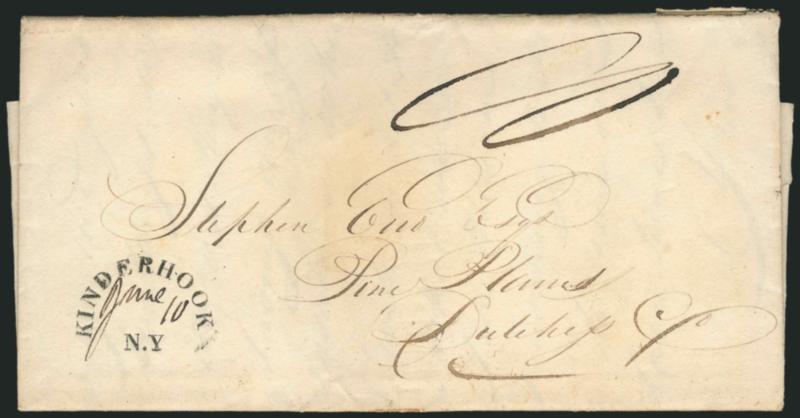 Stephen Eno Esqr
Pine Plains
Dutchess Co
KINDERHOOK
June 10
N.Y